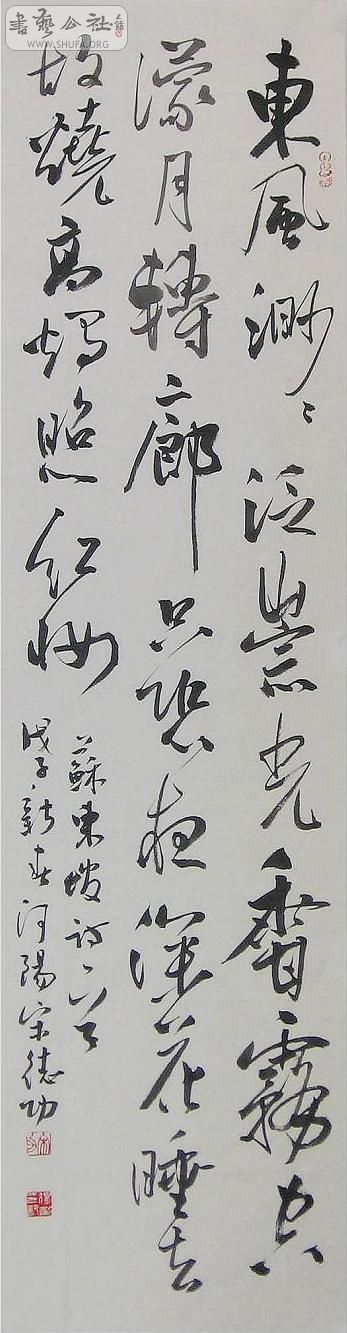 東風渺〻泛崇光香霧空
濛月轉廊只恐夜深花睡去
故燒高燭照紅妝
蘇東坡詩一首
戊子新春河陽宋德功
書藝公社
WWW.SHUFA.ORG